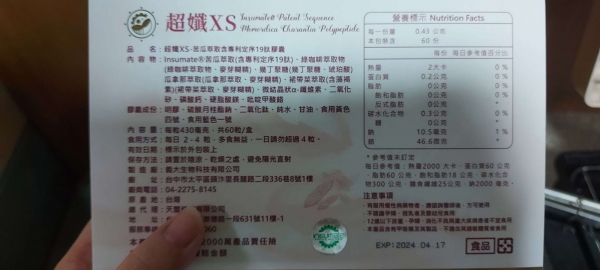 超孅XS
Insumate® Patent Sequence
Momordica Charantia Polypeptide
品 名：超孅XS-苦瓜萃取含專利定序19肽膠囊
內 容 物：Insumate®苦瓜萃取(含專利定序19肽)、綠咖啡萃取物
(綠咖啡萃取物、麥芽糊精)、幾丁聚醣(幾丁聚醣、琥珀酸)
瓜拿那萃取(瓜拿那萃取、麥芽糊精)、裙帶菜萃取(含藻褐
素)(裙帶菜萃取、麥芽糊精)、微結晶狀α-纖維素、二氧化
矽、磷酸鈣、硬脂酸鎂、吡啶甲酸鉻
膠囊成份：明膠、硫酸月桂酯鈉、二氧化鈦、純水、甘油、食用黃色
四號、食用藍色一號
內 容 量：每粒430毫克，共60粒/盒
食用方式：每日2-4粒，多食無益，一日請勿超過4粒。
有效日期：標示於外包裝上
保存方式：請置於陰涼、乾燥之處，避免陽光直射
製 造 廠：義大生物科技有限公司
廠 址：台中市太平區
廠商電話：04-2275-8145
原 產 地：台灣
總 代 理：天
路一段631號11樓-1
服務專線
060
本產
2000萬產品責任險
金額
營養標示 Nutrition Facts
每一份量 0.43 公克
本包裝含 60份
每份 每日參考值百分比
熱量 2大卡 0 %
蛋白質 0.2公克 0 %
脂肪 0 公克 0 %
飽和脂肪 0 公克 0 %
反式脂肪 0 公克 *
碳水化合物 0.3公克 0 %
糖 0公克 *
鈉 10.5毫克 1%
鉻 46.6微克 *
* 參考值未訂定
每日參考值：熱量2000大卡、蛋白質60公克
、脂肪60公克、飽和脂肪18公克、碳水化合
物300公克、膳食纖維25公克、鈉2000毫克。
注意事項
EXP: 2024.04.17
食品